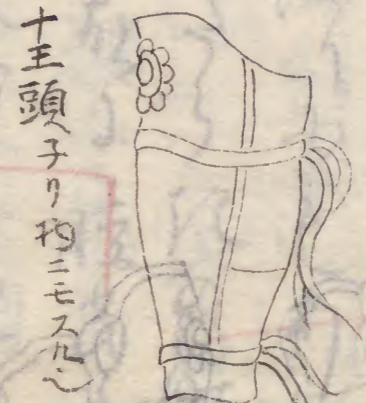 十王頭子リ物ニモスル也